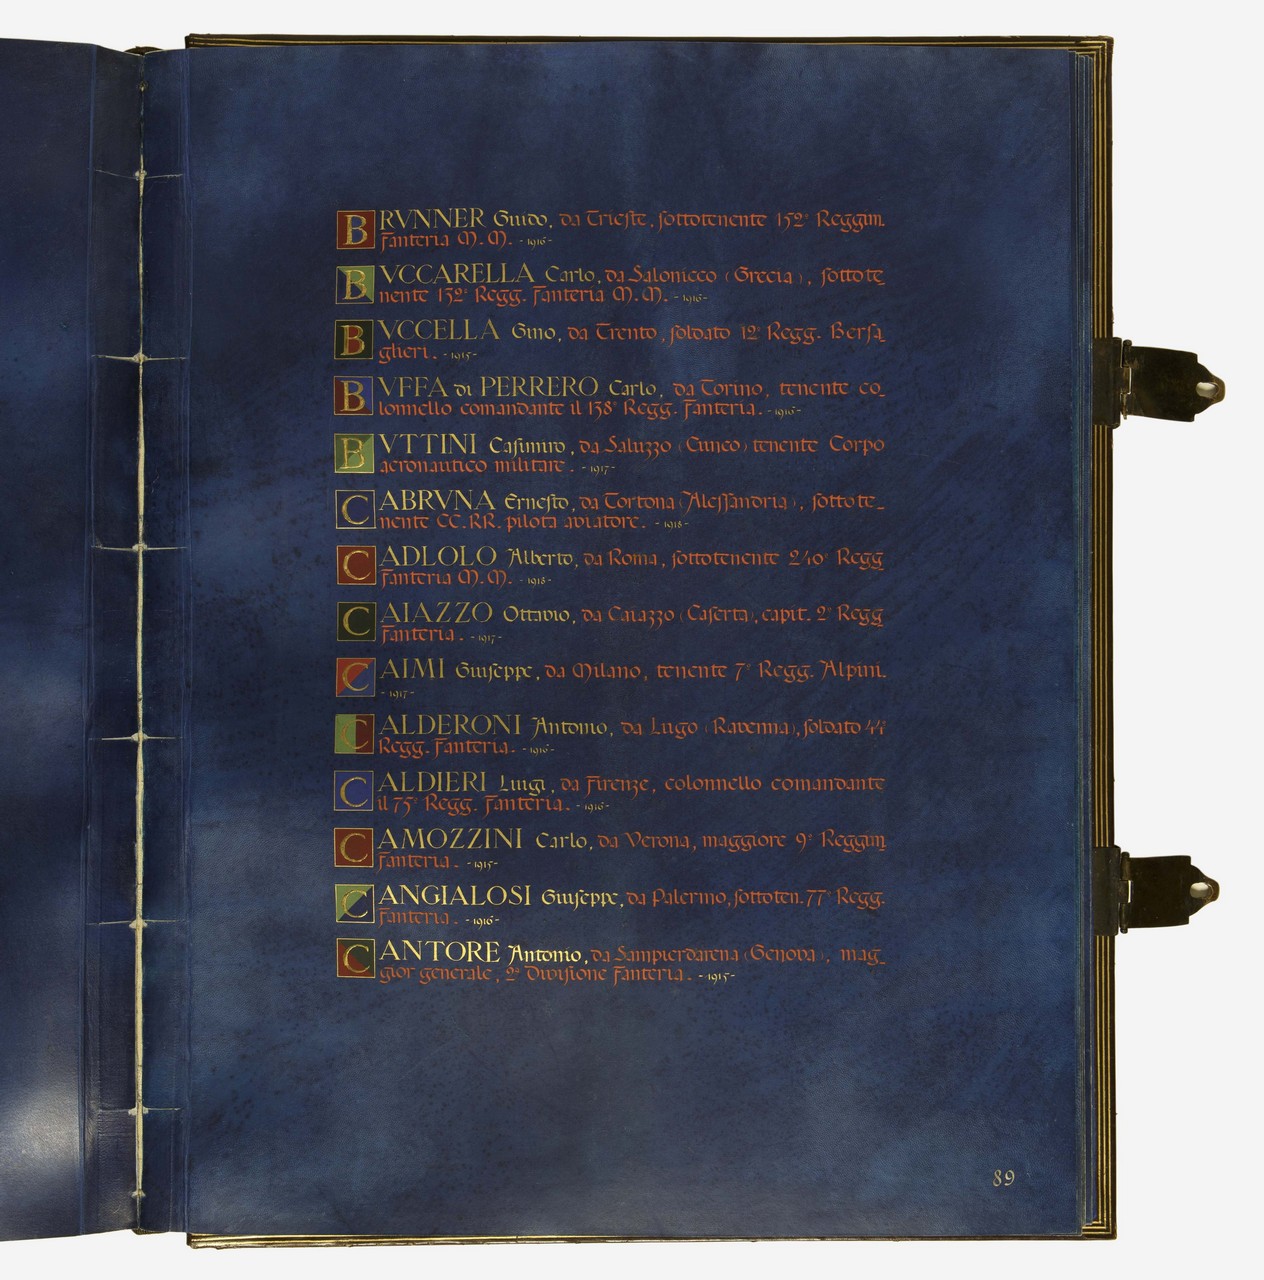 BRVNNER Guido, da Trieste, sottotenente 152° Reggim.
Fanteria M.M. - 1916 -
BVCCARELLA Carlo, da Salonicco (Grecia), sottote
nente 132° Regg. Fanteria M.M. - 1916 -
BVCCELLA Gino, da Trento, soldato 12° Regg. Bersa
glieri. - 1915 -
BVFFA di PERRERO Carlo, da Torino, tenente co-
lonnello comandante il 138° Regg. Fanteria. - 1916 -
BVTTINI Casimiro, da Saluzzo (Cuneo) tenente Corpo
aeronautico militare. - 1917 -
CABRVNA Ernesto, da Tortona (Alessandria), sottote-
nente CC.RR. pilota aviatore. - 1918 -
CADLOLO Alberto, da Roma, sottotenente 240° Regg
Fanteria M.M. - 1918 -
CAIAZZO Ottavio, da Caiazzo (Caserta), capit. 2° Regg
Fanteria. - 1917 -
CAIMI Giuseppe, da Milano, tenente 7° Regg. Alpini.
- 1917 -
CALDERONI Antonio, da Lugo (Ravenna), soldato 44°
Regg. Fanteria. - 1916 -
CALDIERI Luigi, da Firenze, colonnello comandante
il 75° Regg. Fanteria. - 1916 -
CAMOZZINI Carlo, da Verona, maggiore 9° Reggim
Fanteria. - 1915 -
CANGIALOSI Giuseppe, da Palermo, sottoten. 77° Regg.
Fanteria. - 1916 -
CANTORE Antonio, da Sampierdarena (Genova), mag-
gior generale, 2ª Divisione Fanteria. - 1915 -
89